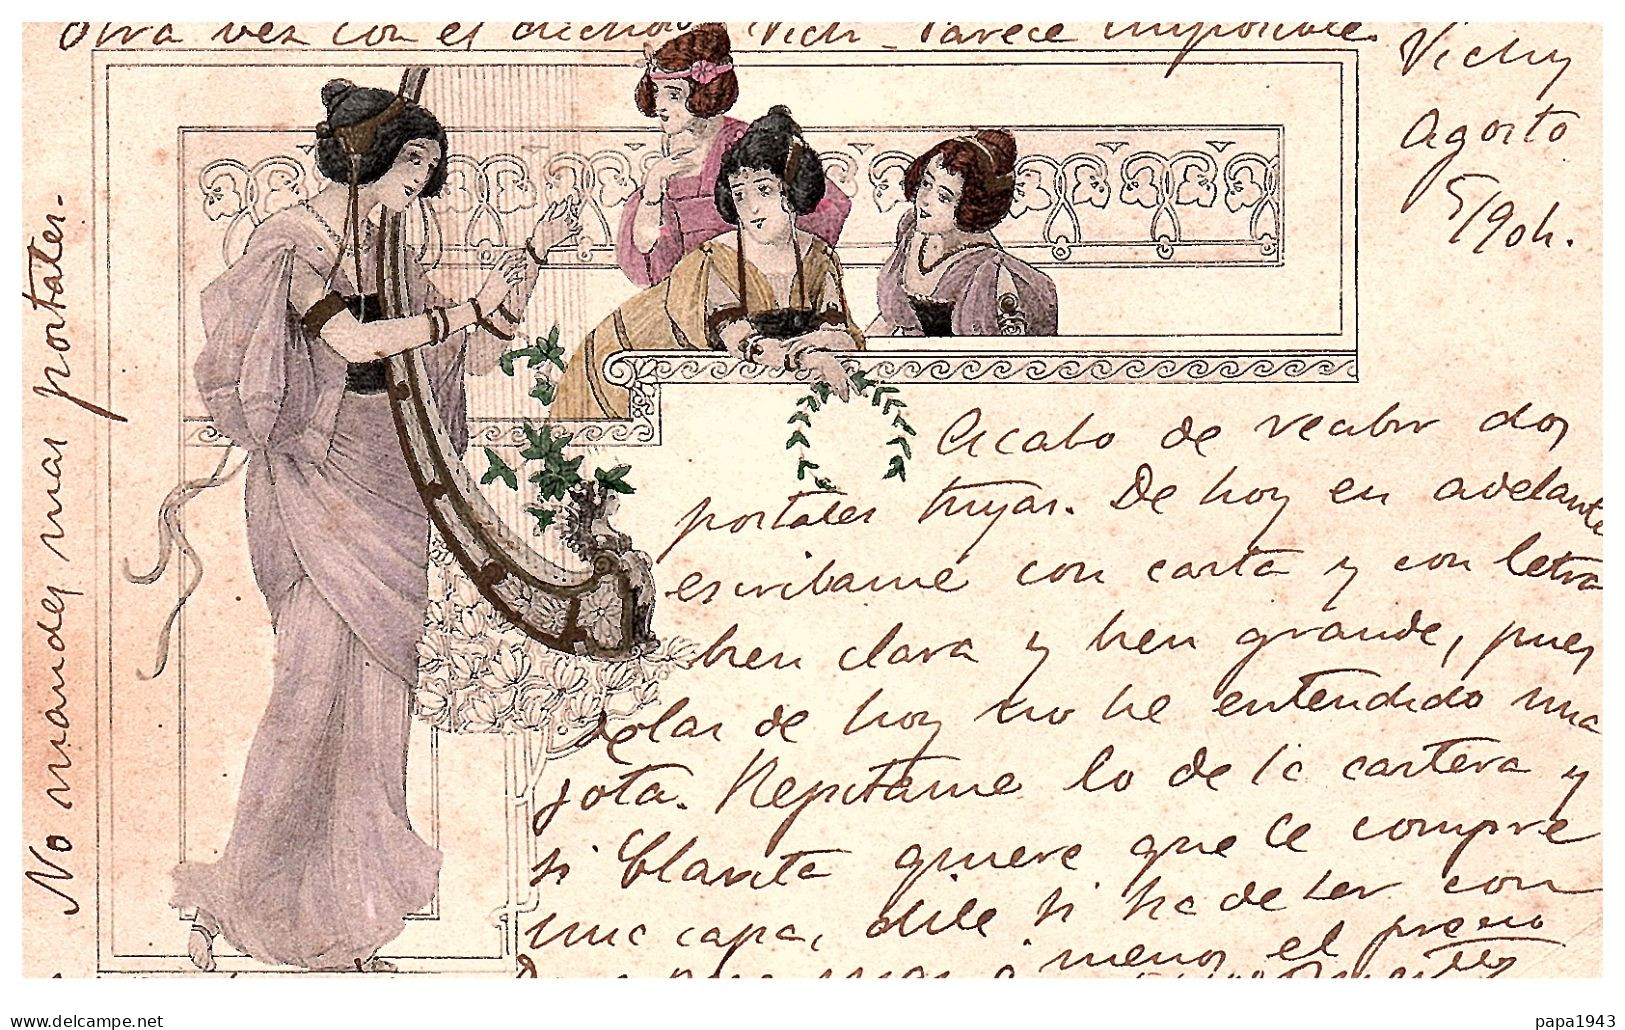 Otra vez con el dichoso Vich - Parece imposible.
Vichy
Agosto
5/904.
Acabo de recibir dos
portales tuyas. De hoy en adelante
escribame con carta y con letra
bien clara y bien grande, pues
de las de hoy no he entendido una
jota. Repitame lo de la cartera y
si Clarita quiere que le compre
una capa, dile si ha de ser con
menos el precio
No mandes mas portales.
delcampe.net
papa1943